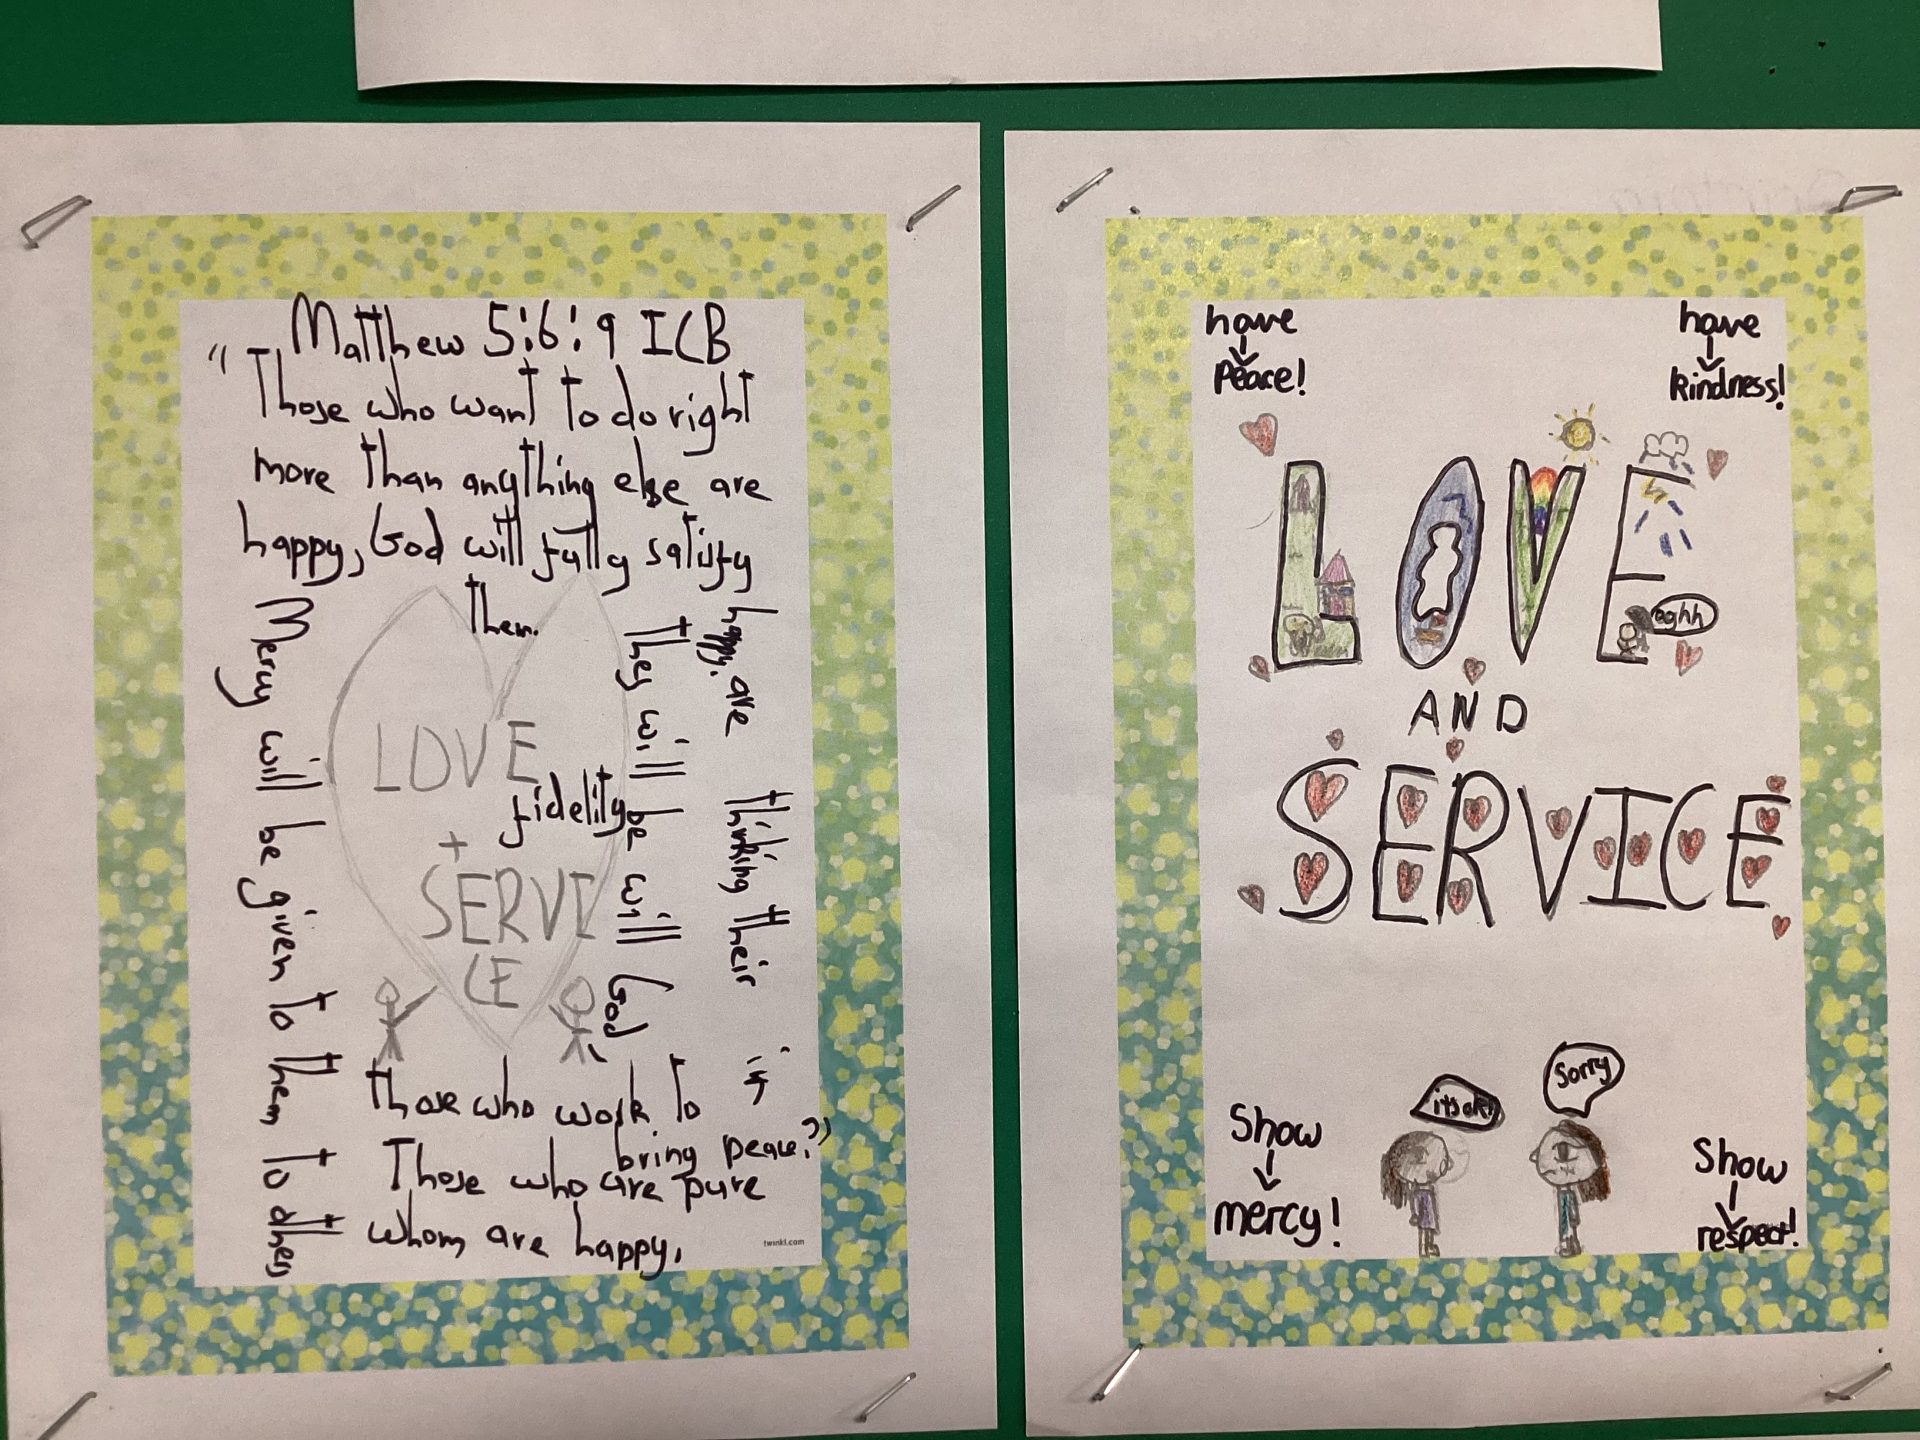 Matthew 5:6:9 ICB
"Those who want to do right
more than anything else are
happy, God will fully satisfy
them.
Mercy will be given to them to others
LOVE
fidelity
+
SERVI
CE
they will be will God
happy, are thinking their in
those who work to
bring peace?"
Those who are pure
whom are happy,
twinkl.com
have
Peace!
have
kindness!
LOVE
aghh
AND
SERVICE
sorry
its ok!
Show
mercy!
Show
respect!